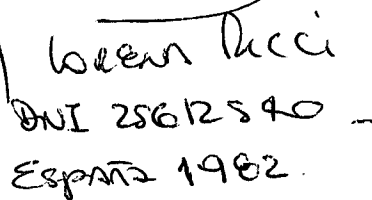 Lorena Ricci
DNI 25612540 -
España 1982.